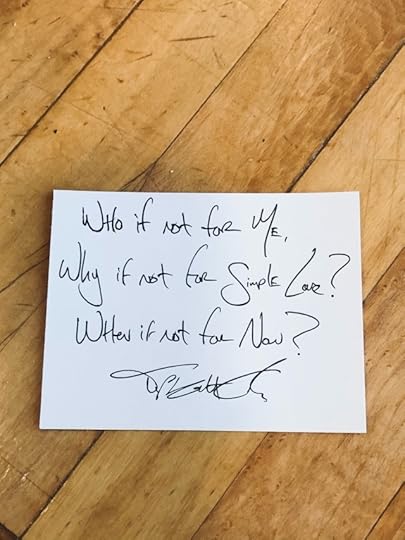 Who if not for Me,
Why if not for Simple Love?
When if not for Now?